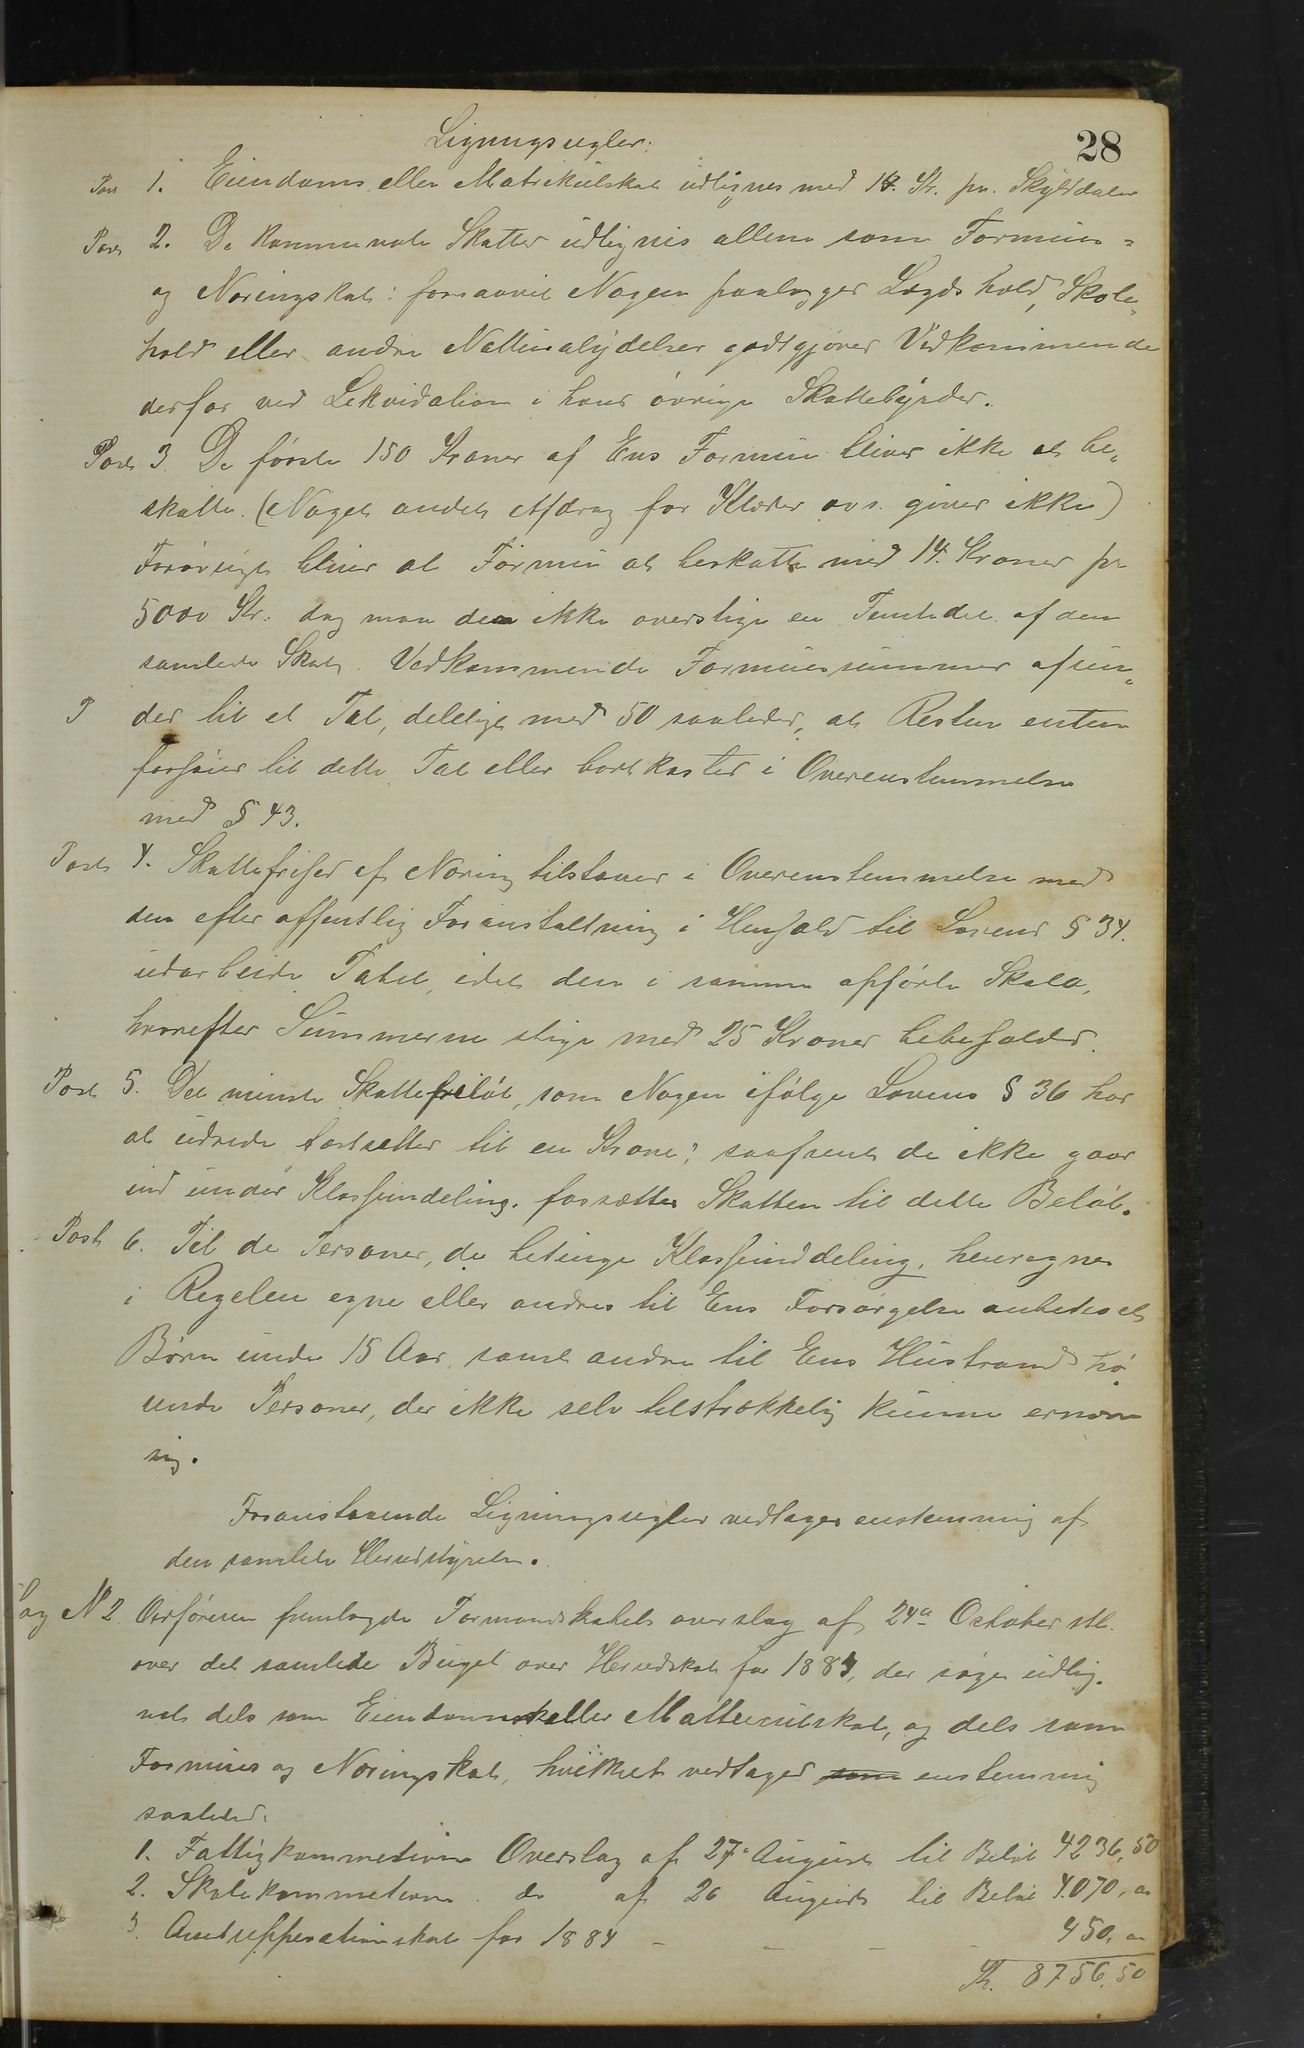 28
Ligningsregler:
Post 1. Eiendoms eller Matrikulskat udlignes med 14. Kr. pr. Skylddaler
Post 2. De kommunale Skatter udlignes allene som Formues-
og Næringskat: forsaavit Nogen paalægges Lægdshold, Skole„
hold eller andre Natturalydelser godtgjøres Vedkommende
derfor ved Lekvidation i hans øvrige Skattebyrder.
Post 3. De første 150 Kroner af Ens Formue bliver ikke at be„
skatte. (Noget andet Afdrag for Klæder ovs. gives ikke)
Forøvrigt bliver al Formue at beskatte med 14. Kroner pr
5000 Kr. dog maa den ikke overstige en Temtedel af den
samlede Skat. Vedkommende Formuessummer afrun„
P der til et Tal, delelige med 50 saaledes, at Resten enten
forhøies til dette Tal eller bortkastes i Overenstemmelse
med § 43.
Post 4. Skattefrihed af Næring tilstaaes i Overenstemmelse med
den efter offentlig Foranstaltning i Henhold til Lovens § 34.
udarbeide Tabel, idet den i samme opførte Skala,
hvorefter Summerne stige med 25 Kroner bebeholdes.
Post 5. Det minste Skattebeløb, som Nogen ifølge Lovens § 36 har
at udrede fastsættes til en Krone; saafremt de ikke gaar
ind under Klasseindeling. forsættes Skatten til dette Beløb.
Post 6. Til de Personer, de betinge Klasseinddeling, henregnes
i Regelen egne eller andres til Ens Forsørgelse anbetroet
Børn under 15 Aar, samt andre til Ens Hustrand hø„
rende Personer, der ikke selv tilstrækkelig kunne ernære
sig.
Foranstaaende Ligningsregler vedtages enstemmig af
den samlede Herredstyrelse.
Sag N 2 Ordføreren fremlagde Formandskabets overslag af 24de October stl.
over det samlede Buget over Herredskat for 1884, der søges udlig„
net dels som Eiendomsskeller Matteriulskat, og dels som
Formues og Næringskat, hvilket vedtages enstemmig
saaledes:
1. Fattigkommetions Overslag af 27de August til Beløb 4236,50
2. Skolekommetions do af 26 August til Beløb 4.070,00
3. Amtsrepperationskat for 1884 - - - - 450,00
Kr. 8756,50